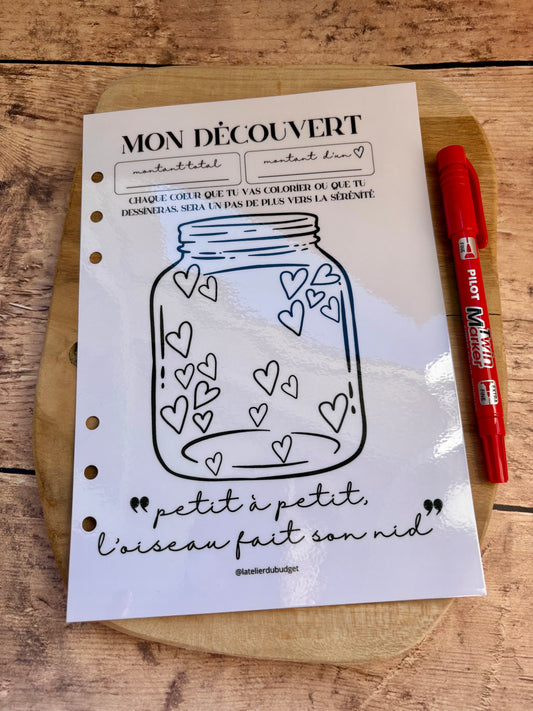 MON DÉCOUVERT
montant total
montant d'un ♡
CHAQUE COEUR QUE TU VAS COLORIER OU QUE TU
DESSINERAS, SERA UN PAS DE PLUS VERS LA SÉRÉNITÉ
"petit à petit,
l'oiseau fait son nid"
@latelierdubudget
PILOT
Twin
Marker